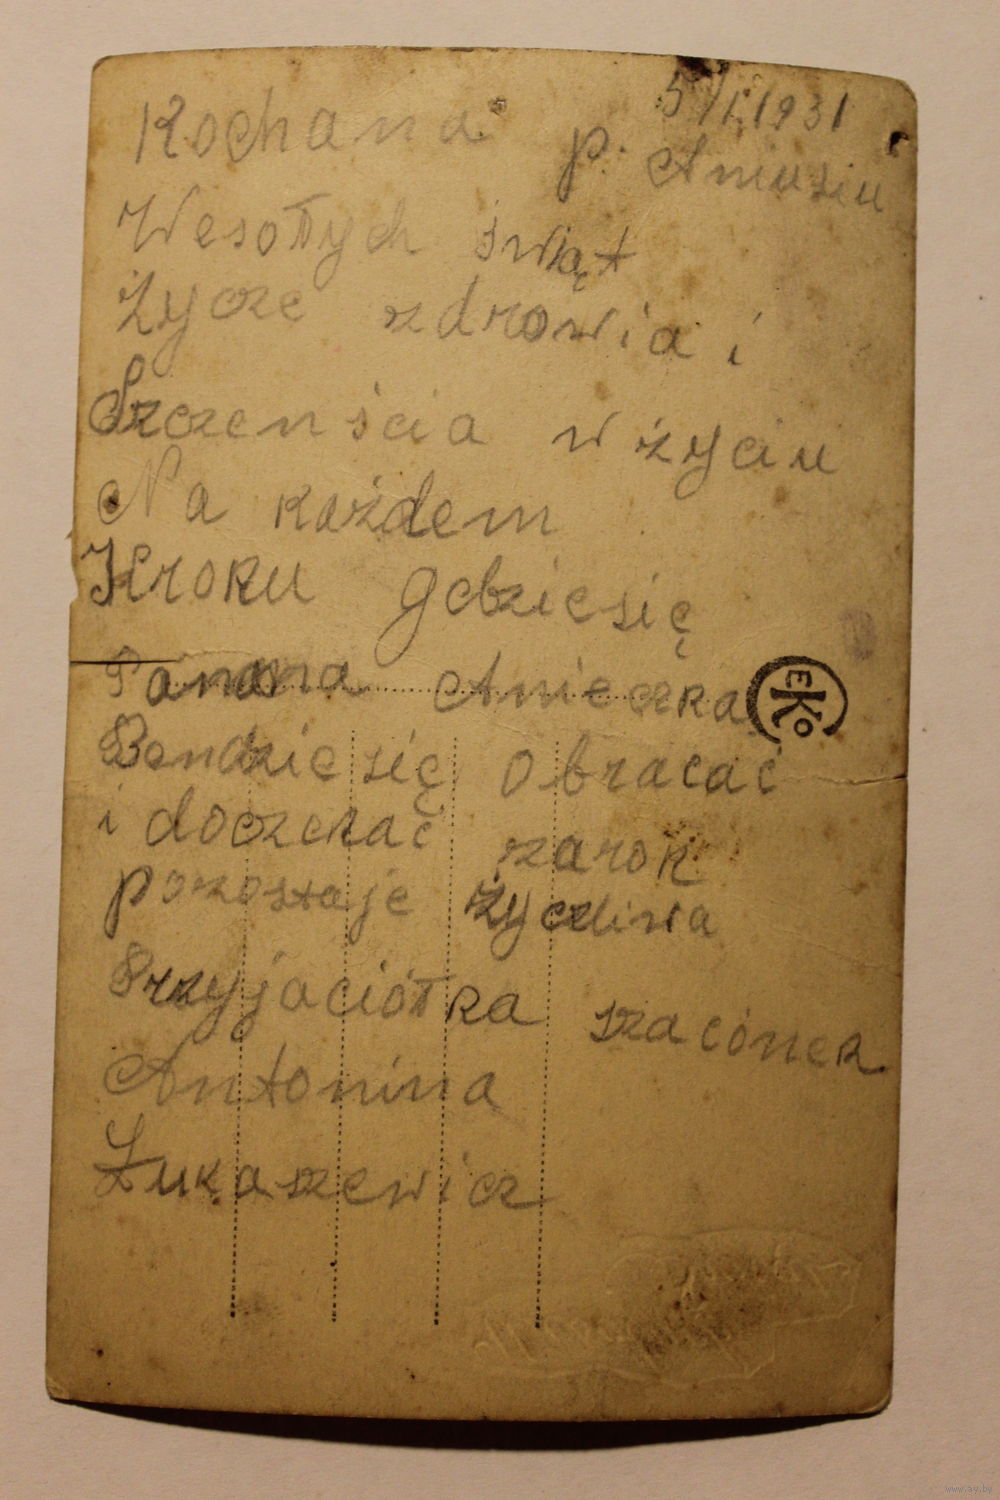 5/I 1931
Kochana p. Aniusiu
Wesołych świąt
Życze zdrowia i
Szczenścia w życiu
Na każdem
Kroku gdziesię
Panna Anieczka
EKO
Bendzie się obracać
i doczekać zarok
pozostaje życzliwa
Przyjaciółka szacónek
Antonina
Łukaszewicz
www.ay.by